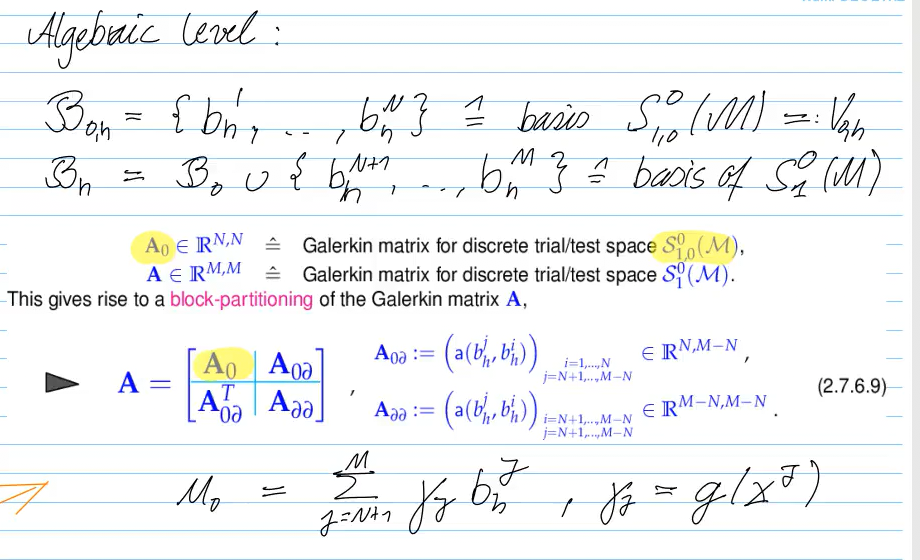 Algebraic level :
𝔅₀,ₕ = { bₕ¹, . . , bₕᴺ } ≙ basis S⁰₁,₀(M) =: V₀,ₕ
𝔅ₕ = 𝔅₀ ∪ { bₕᴺ⁺¹, . . , bₕᴹ } ≙ basis of S⁰₁(M)
A₀ ∈ ℝ^{N,N} ≙ Galerkin matrix for discrete trial/test space S⁰₁,₀(M),
A ∈ ℝ^{M,M} ≙ Galerkin matrix for discrete trial/test space S⁰₁(M).
This gives rise to a block-partitioning of the Galerkin matrix A,
A = [ A₀ | A₀∂ ; A₀∂ᵀ | A∂∂ ] ,
A₀∂ := (a(bₕʲ, bₕⁱ))_{i=1,...,N j=N+1,...,M−N} ∈ ℝ^{N,M−N} ,
A∂∂ := (a(bₕʲ, bₕⁱ))_{i=N+1,...,M−N j=N+1,...,M−N} ∈ ℝ^{M−N,M−N} .
(2.7.6.9)
u₀ = Σ_{j=N+1}^{M} γⱼ bₕʲ , γⱼ = g(xʲ)